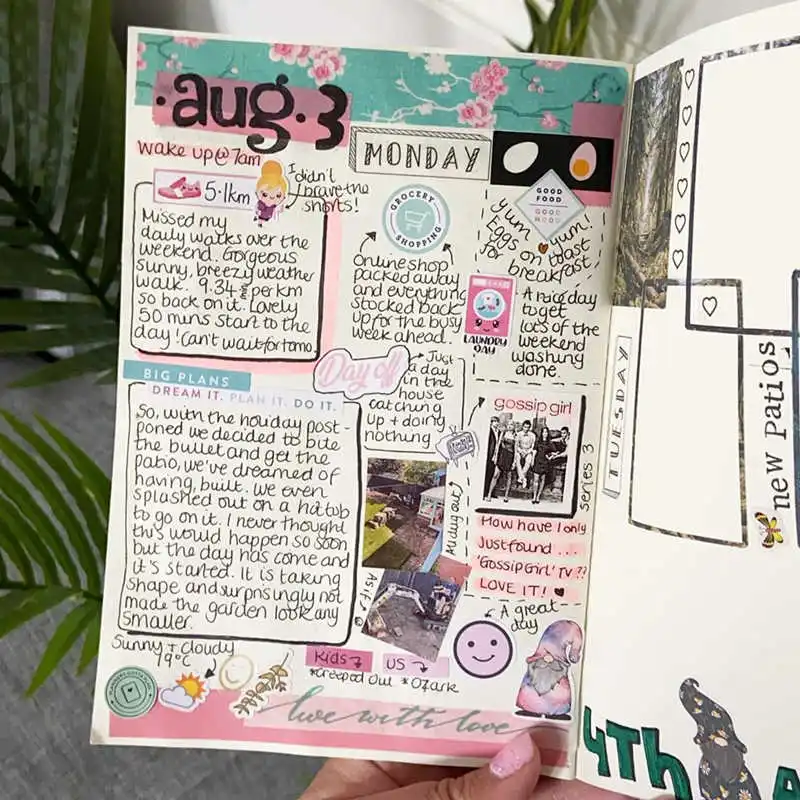 ·aug·3
MONDAY
wake up@7am
5.1km
I didn't
brave the
shorts!
Missed my
daily walks over the
weekend. Gorgeous
sunny, breezy weather
walk. 9.34 per km
so back on it. Lovely
50 mins start to the
day! Can't wait for tomo
GROCERY
SHOPPING
Online shop
packed away
and everything
stocked back
up for the busy
week ahead.
GOOD
FOOD
GOOD
MOOD
yum yum!
Eggs on toast
for breakfast
LAUNDRY
DAY
A nice day
to get
lots of the
weekend
washing
done.
BIG PLANS
DREAM IT. PLAN IT. DO IT.
So, with the holiday post-
poned we decided to bite
the bullet and get the
patio, we've dreamed of
having, built. We even
splashed out on a hot tub
to go on it. I never thought
this would happen so soon
but the day has come and
it's started. It is taking
shape and surprisingly not
made the garden look any
smaller.
Day off
Just
a day
in the
house
catching
up + doing
nothing
All dug out
As if!
gossip girl
series 3
How have I only
Just found ...
'Gossip Girl' TV??
LOVE IT!
A great
day
Sunny + cloudy
19°C
Kids
*Creeped Out
US
*Ozark
live with love
TUESDAY
new Patios
4TH A